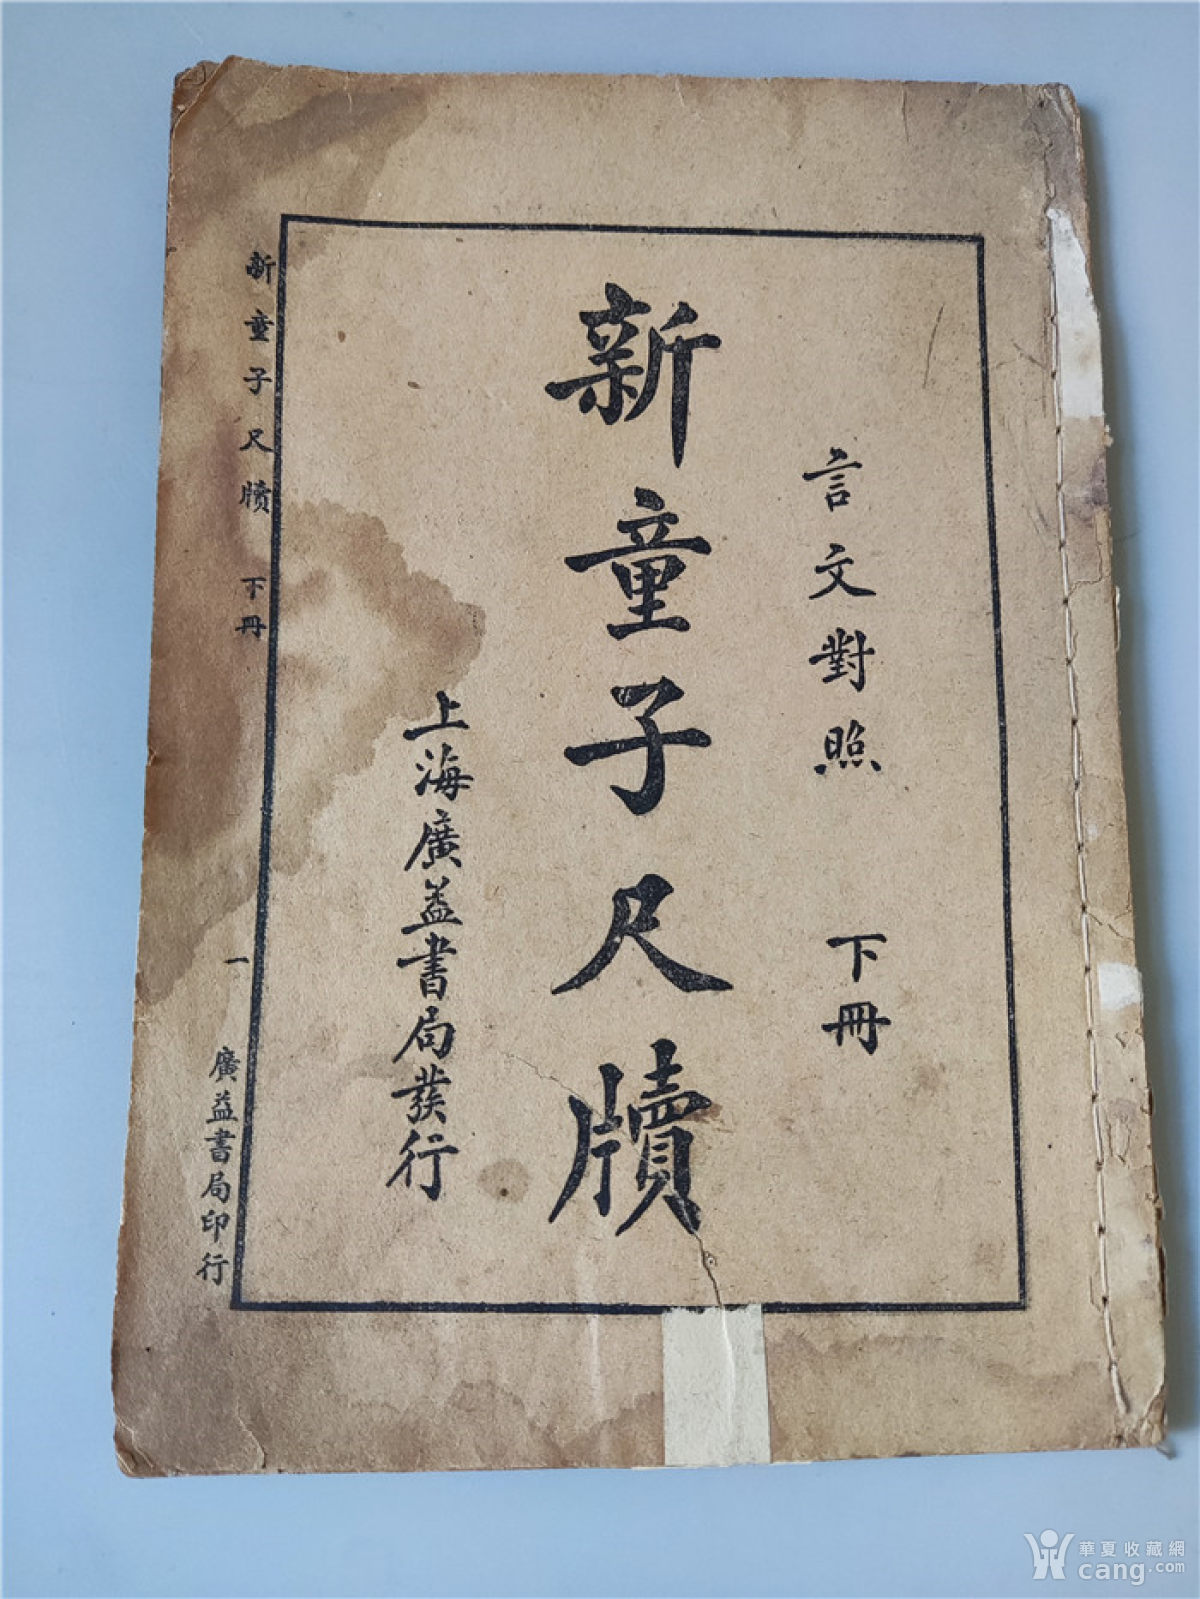 言文對照 下冊
新童子尺牘
上海廣益書局發行
新童子尺牘 下冊 一 廣益書局印行
華夏收藏網
cang.com